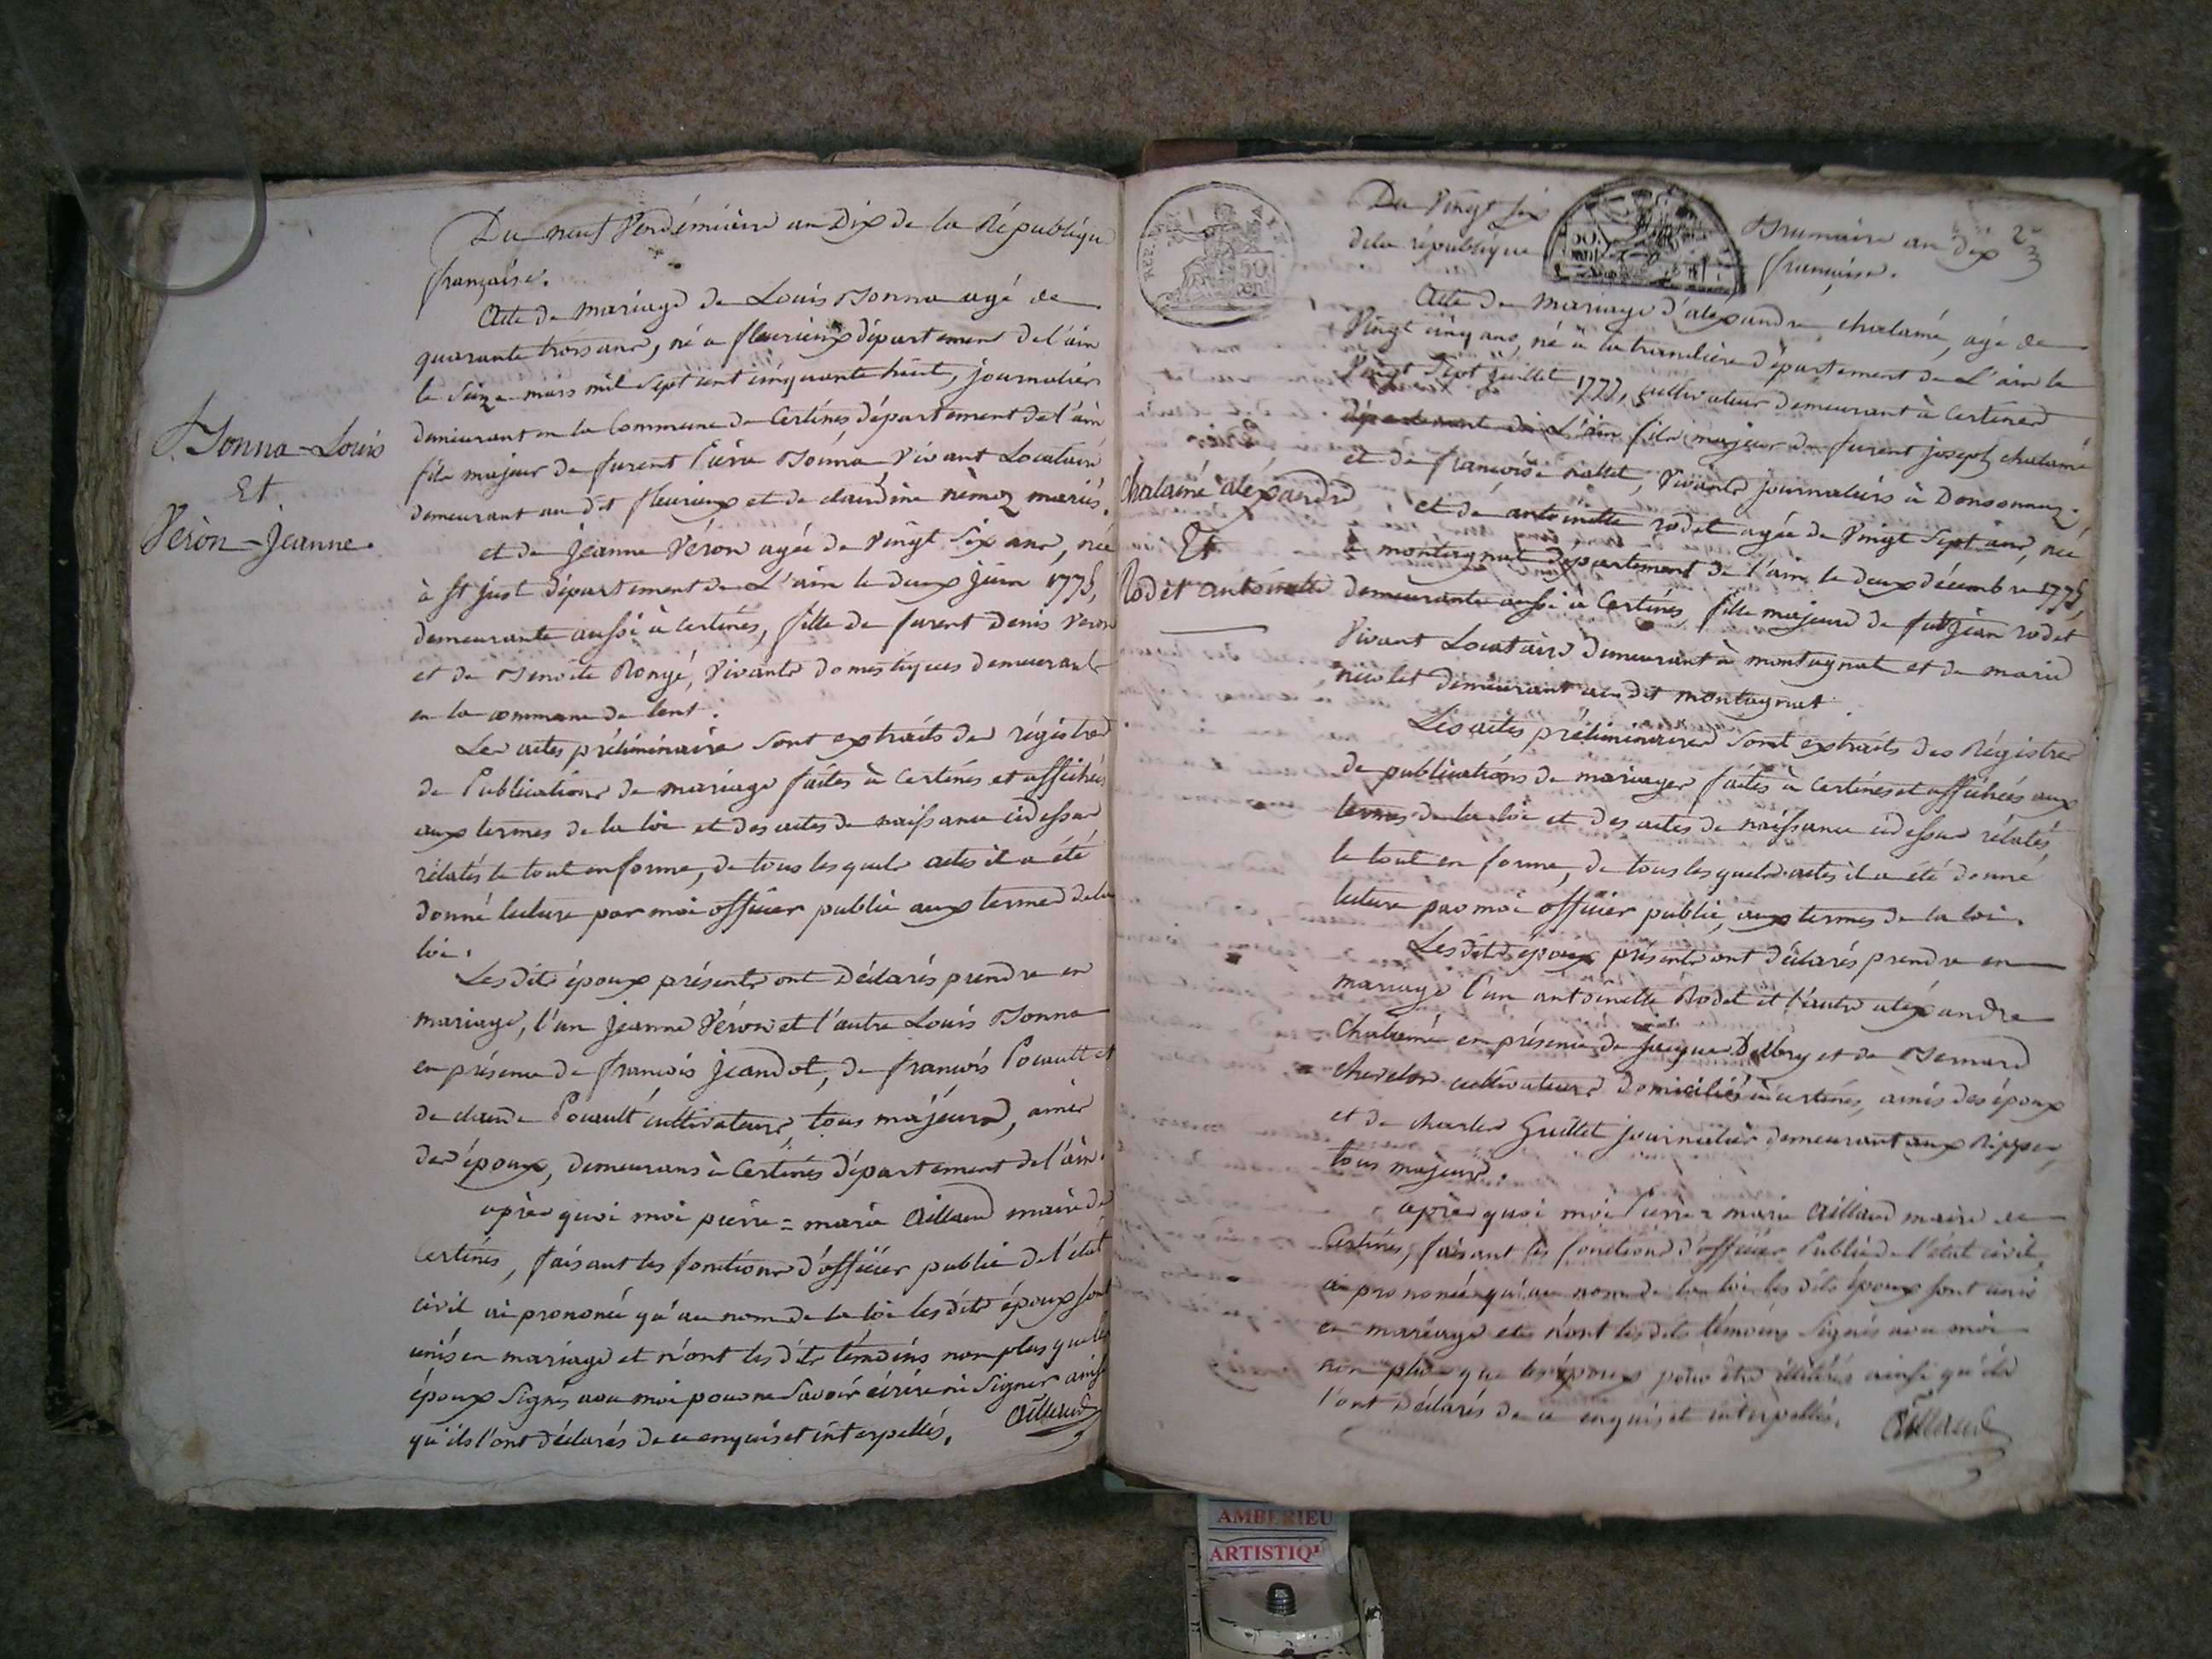 Du neuf Vendémiaire an Dix de la République
française.
Acte de mariage de Louis Bonna agé de
quarante trois ans, né a fleurieux département de l'ain
le seize mars mil sept cent cinquante huit, journalier
demeurant en la Commune de Certines département de l'ain
fils majeur de furent Pierre Bonna vivant Locataire
demeurant au dit fleurieux et de claudine némoz mariés.
Bonna-Louis
Et
Véron-Jeanne.
et de Jeanne Véron agée de Vingt six ans, née
à St just département de L'ain le deux juin 1775,
demeurante aussi à Certines, fille de furent Denis Veron
et de Benoite Rongé, Vivants domestiques demeurants
en la commune de lent.
Les actes préliminaires sont extraits des régistres
de Publications de mariage faites à Certines et affichées
aux termes de la loi et des actes de naissance cidessus
rélatés le tout en forme, de tous lesquels actes il a été
donné lecture par moi officier public aux termes de la
loi.
Les dits époux présents ont Déclarés prendre en
mariage, l'un Jeanne Véron et l'autre Louis Bonna
en présence de françois Jeandot, de françois Pocault et
de claude Pocault cultivateurs tous majeurs, amis
des époux, demeurans à Certines département de l'ain.
après quoi moi pierre=marie Aillaud maire de
Certines, faisant les fonctions d'officier public de l'état
civil ai prononcé qu'au nom de la loi les dits époux sont
unis en mariage et n'ont les dits témoins non plus que les
époux signés avec moi pour ne savoir écrire ni signer ainsi
qu'ils l'ont déclarés de ce enquis et interpellés.
Aillaud
REP. FRA.
50 cent
Du Vingt six Brumaire an dix
dela république française.
50
2
Acte de mariage d'alexandre chalamé, agé de
Vingt cinq ans, né à la tranclière département de L'ain le
Vingt sept juillet 1777, cultivateur demeurant à Certines
département de L'ain fils majeur de furent joseph chalamé
et de françoise nallet, Vivants journaliers à Donsonnaz.
Chalamé aléxandre
Et
Rodet antoinette
et de antoinette rodet agée de Vingt sept ans, née
à montagnat département de l'ain le deux décembre 1775,
demeurante aussi à Certines, fille majeure de fut jean rodet
Vivant Locataire demeurant à montagnat et de marie
nicolet demeurant au dit montagnat.
Les actes préliminaires sont extraits des Régistres
de publications de mariages faites à Certines et affichées aux
termes de la loi et des actes de naissance cidessus rélatés,
le tout en forme, de tous les quels actes il a été donné
lecture par moi officier public, aux termes de la loi.
Les dits époux présents ont déclarés prendre en
mariage l'un antoinette Rodet et l'autre aléxandre
Chalamé en présence de jacque Debry et de Bernard
chevelon cultivateurs domiciliés à Certines, amis des époux
et de charles Guillet journalier demeurant aux Rippes,
tous majeurs.
après quoi moi Pierre=marie Aillaud maire de
Certines, faisant les fonctions d'officier Public de l'état civil,
ai prononcé qu'au nom de la loi les dits époux sont unis
en mariage et n'ont les dits témoins signés avec moi
non plus que les époux pour être illitérés ainsi qu'ils
l'ont déclarés de ce enquis et interpellés.
Aillaud
AMBERIEU
ARTISTIQ